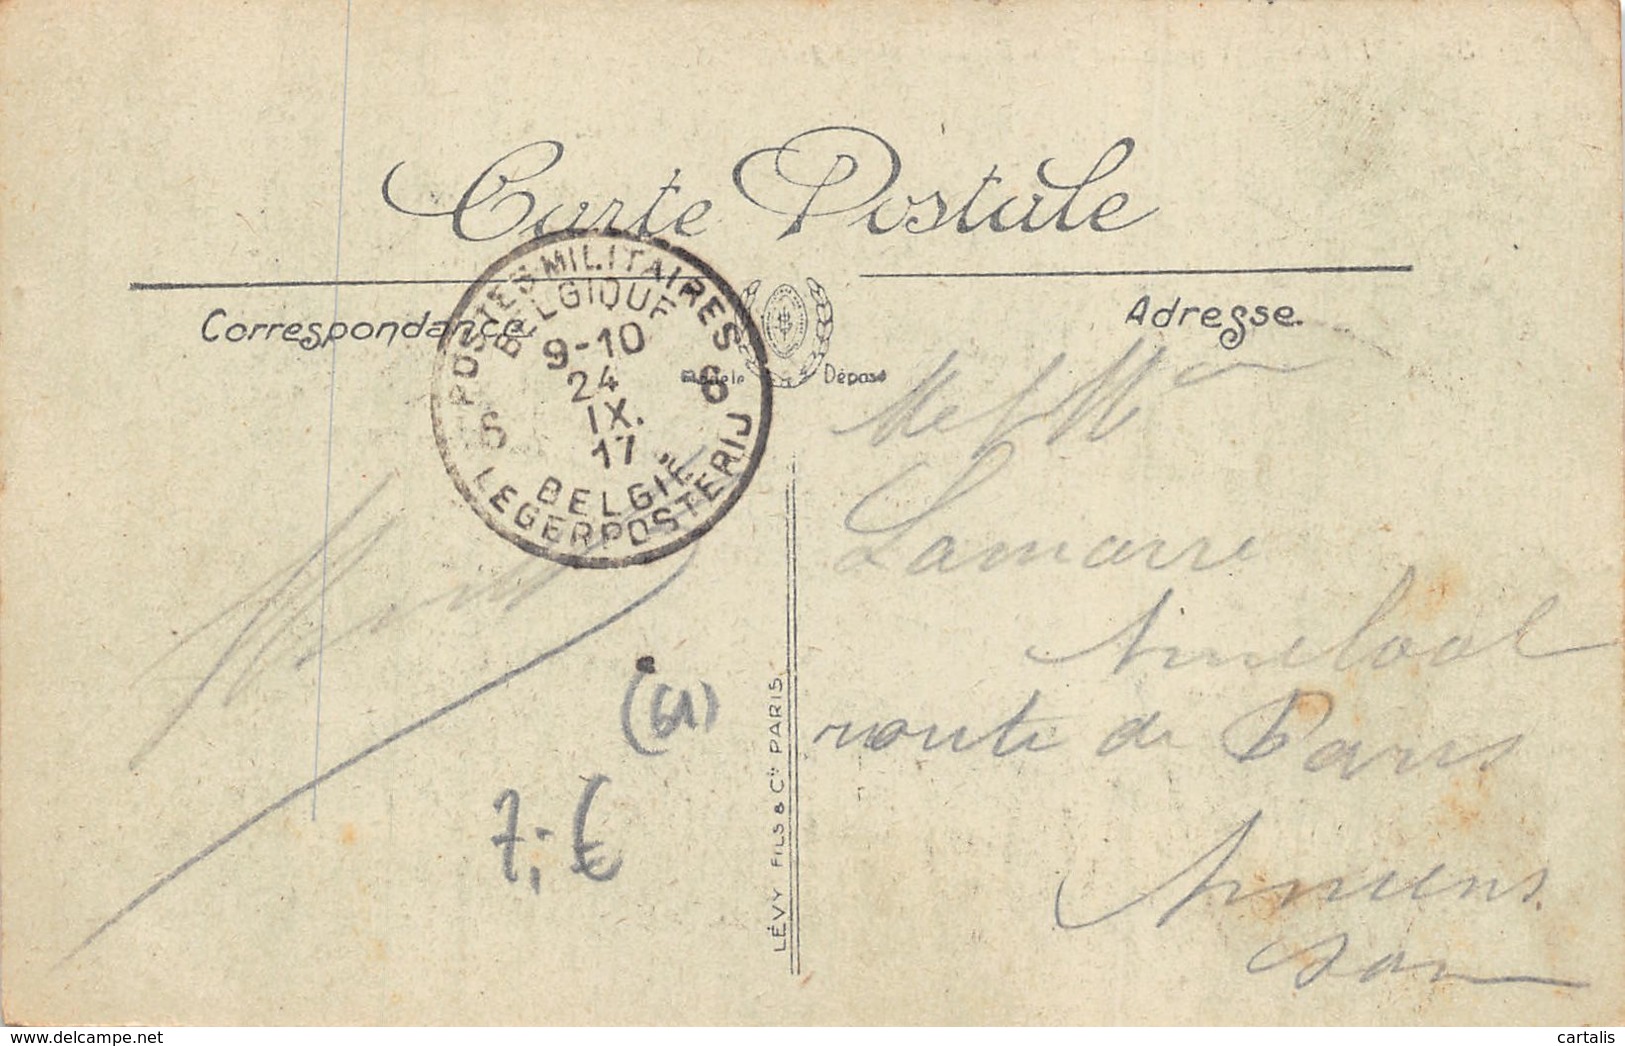 Carte Postale
Correspondance
Adresse.
Modèle Déposé
POSTES MILITAIRES
BELGIQUE
9-10
24
IX.
17
6 6
BELGIË
LEGERPOSTERIJ
Lamarre
route de Paris
Amiens
(61)
7,- €
LÉVY FILS & Cie PARIS
cartalis
www.delcampe.net